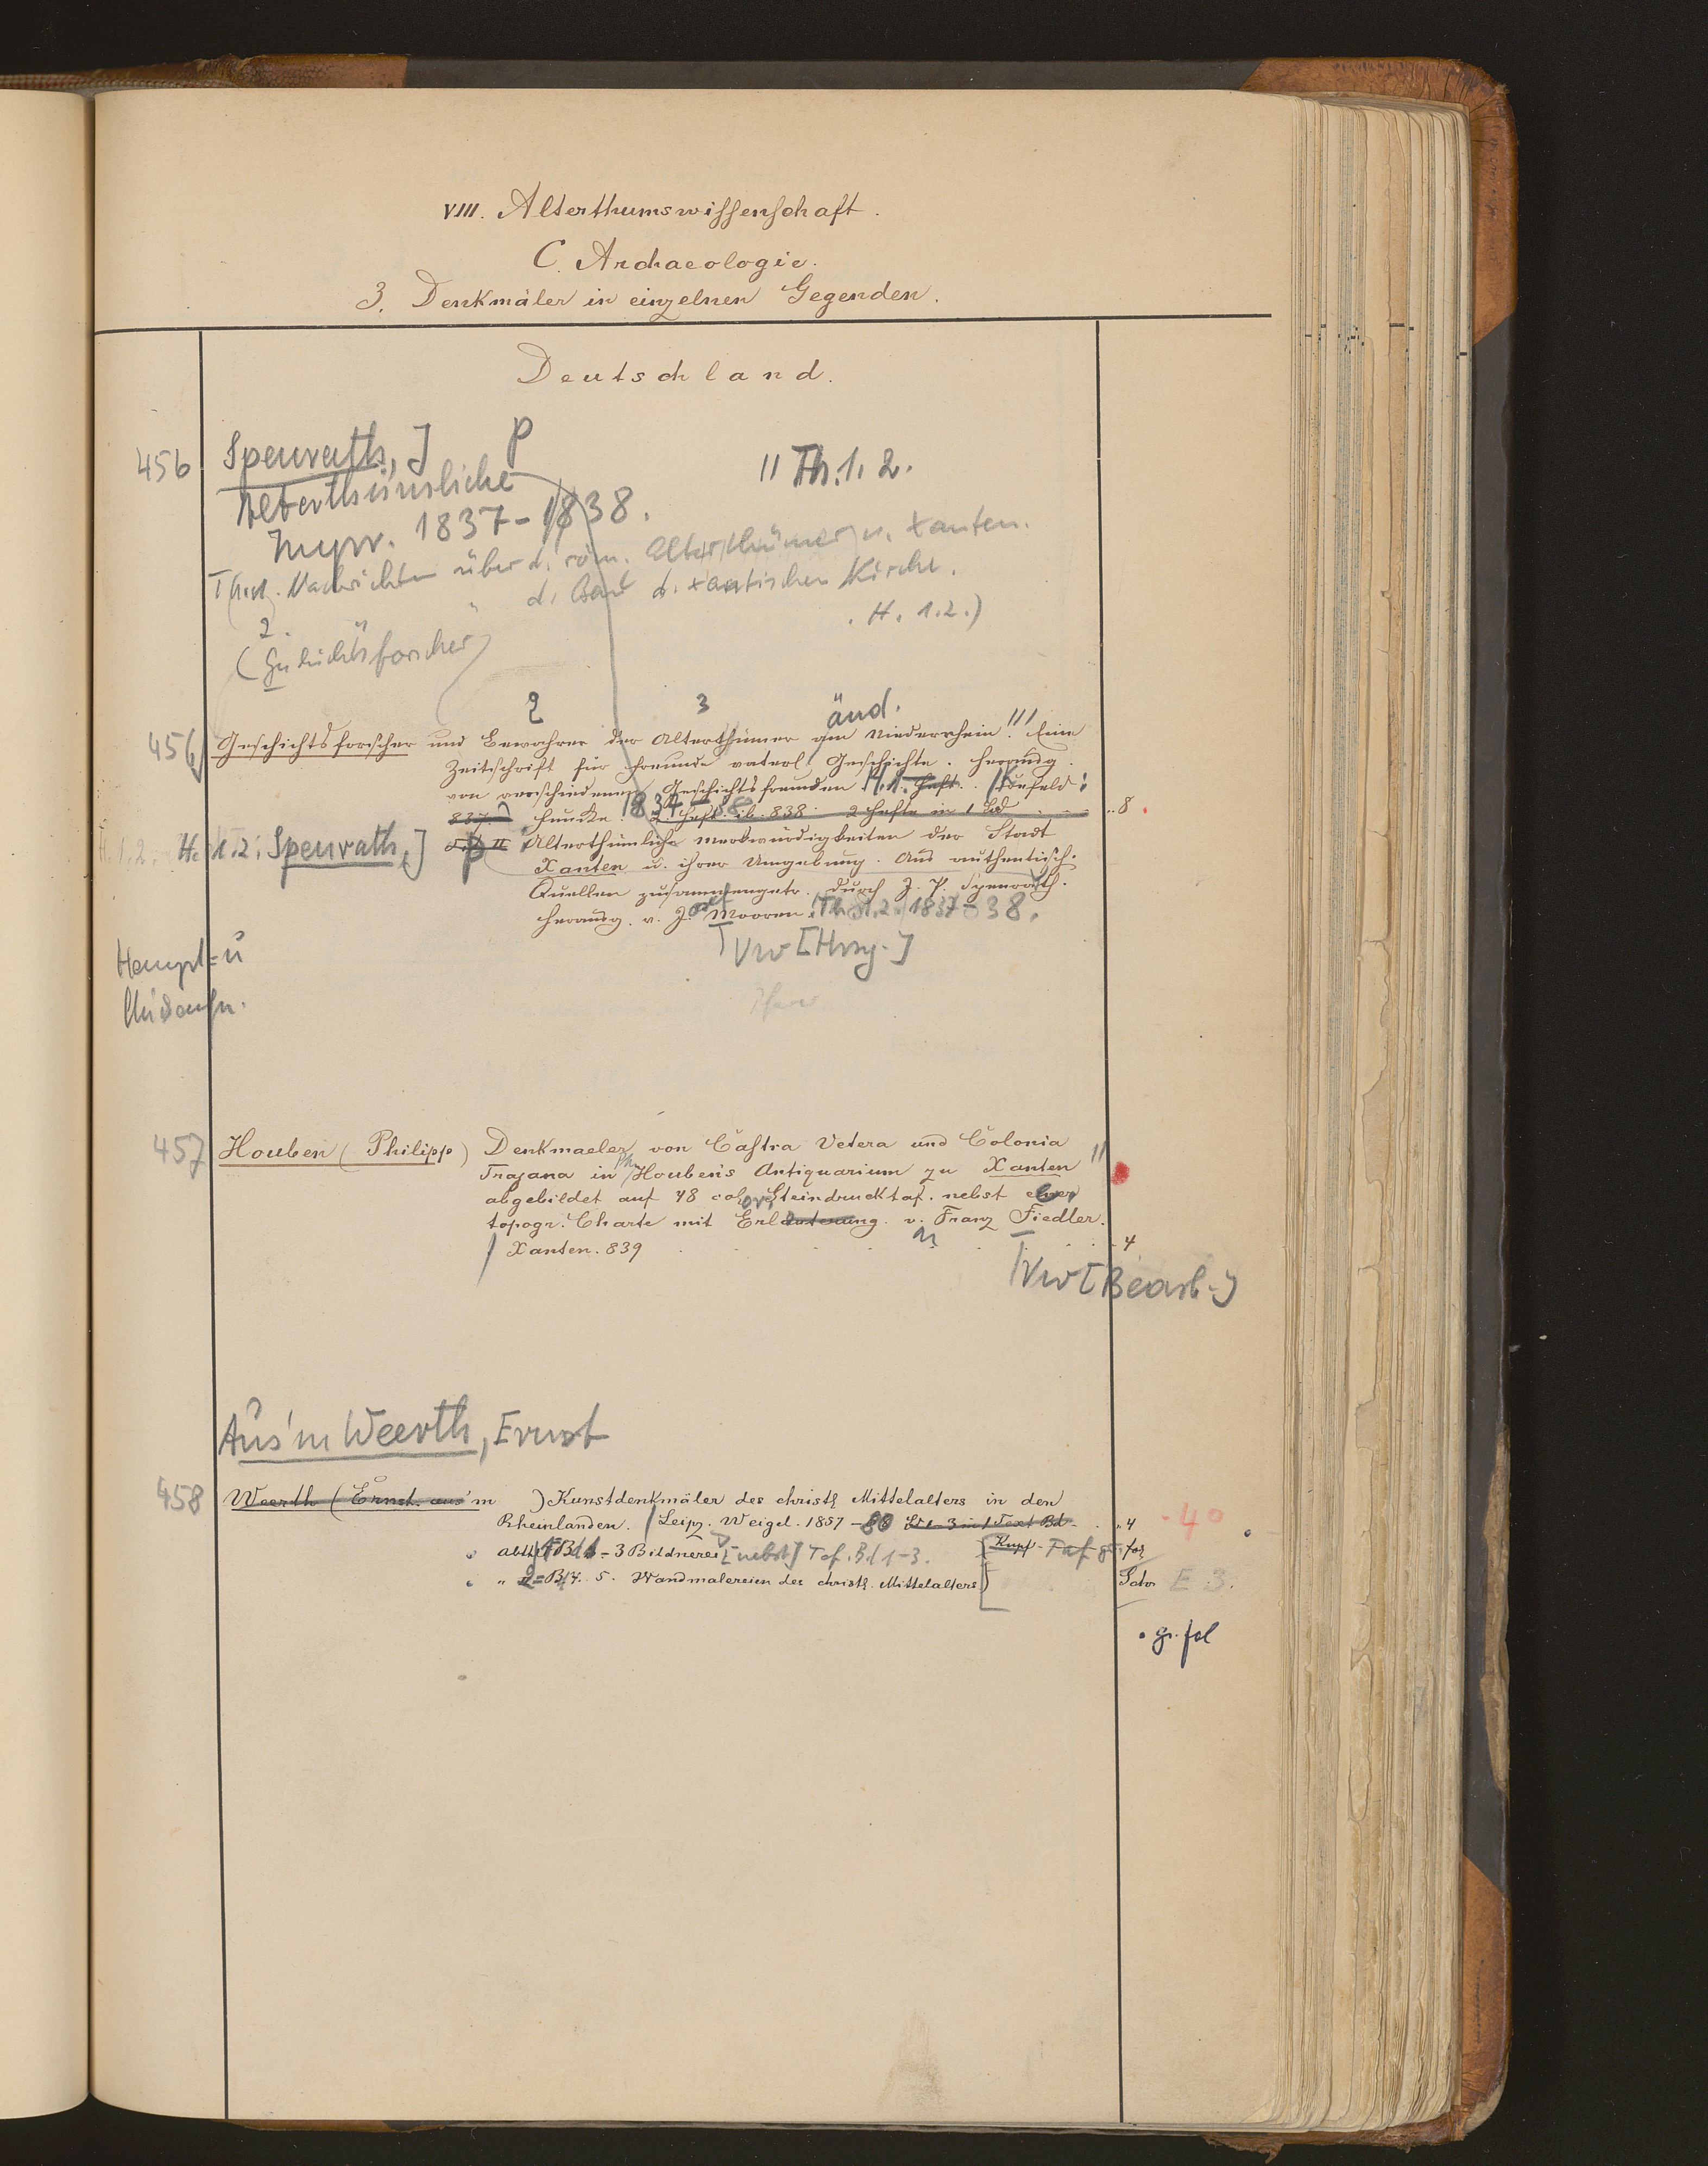 VIII. Alterthumswissenschaft.
C. Archaeologie.
3. Denkmäler in einzelnen Gegenden.
Deutschland.
456 Spenrath, J P
Alterthümliche
" Th. 1. 2.
1837-1838.
Nachrichten über d. röm. Alterthümer v. Xanten.
d. Bau d. xantischen Kirche.
2. . H. 1.2.)
(Geschichtsforscher)
2 3 änd.
456 Geschichtsforscher und Bewahrer der Alterthümer am Niederrhein!!! Eine
Zeitschrift für Freunde vaterl. Geschichte. Herausg.
von verschiedenen Geschichtsfreunden H. 1. Heft.
837. 1837-38 2 Heft. ib. 838. 2 Hefte in 1 Bd. 8
H. 1.2. H. 1.2: Spenrath, J P II Alterthümliche Merkwürdigkeiten der Stadt
Xanten u. ihrer Umgebung. Aus authentisch.
Quellen zusammengetr. durch J. P. Spenrath.
Herausg. v. J. Mooren. Th. 1.2. 1837-38.
Vw [Hrsg.]
Haupt= u
457 Houben (Philipp) Denkmaeler von Castra Vetera und Colonia
Trajana in Ph. Houben's Antiquarium zu Xanten "
abgebildet auf 48 color. Steindrucktaf. nebst einer
topogr. Charte mit Erläuterung. v. Franz Fiedler.
Xanten. 839 4
Vw [Bearb.]
Aus'm Weerth, Ernst
458 Weerth (Ernst aus'm ) Kunstdenkmäler des christl. Mittelalters in den
Rheinlanden. Leipz. Weigel. 1857-80 Bd 1-3 in 1 Text Bd. 4 4°
Abth. 1 Bd 1-3 Bildnerei [nebst] Taf. Bd 1-3. Kupf-Taf gr. fol
" 2= Bd 4. 5. Wandmalereien des christl. Mittelalters) E 3.
gr. fol